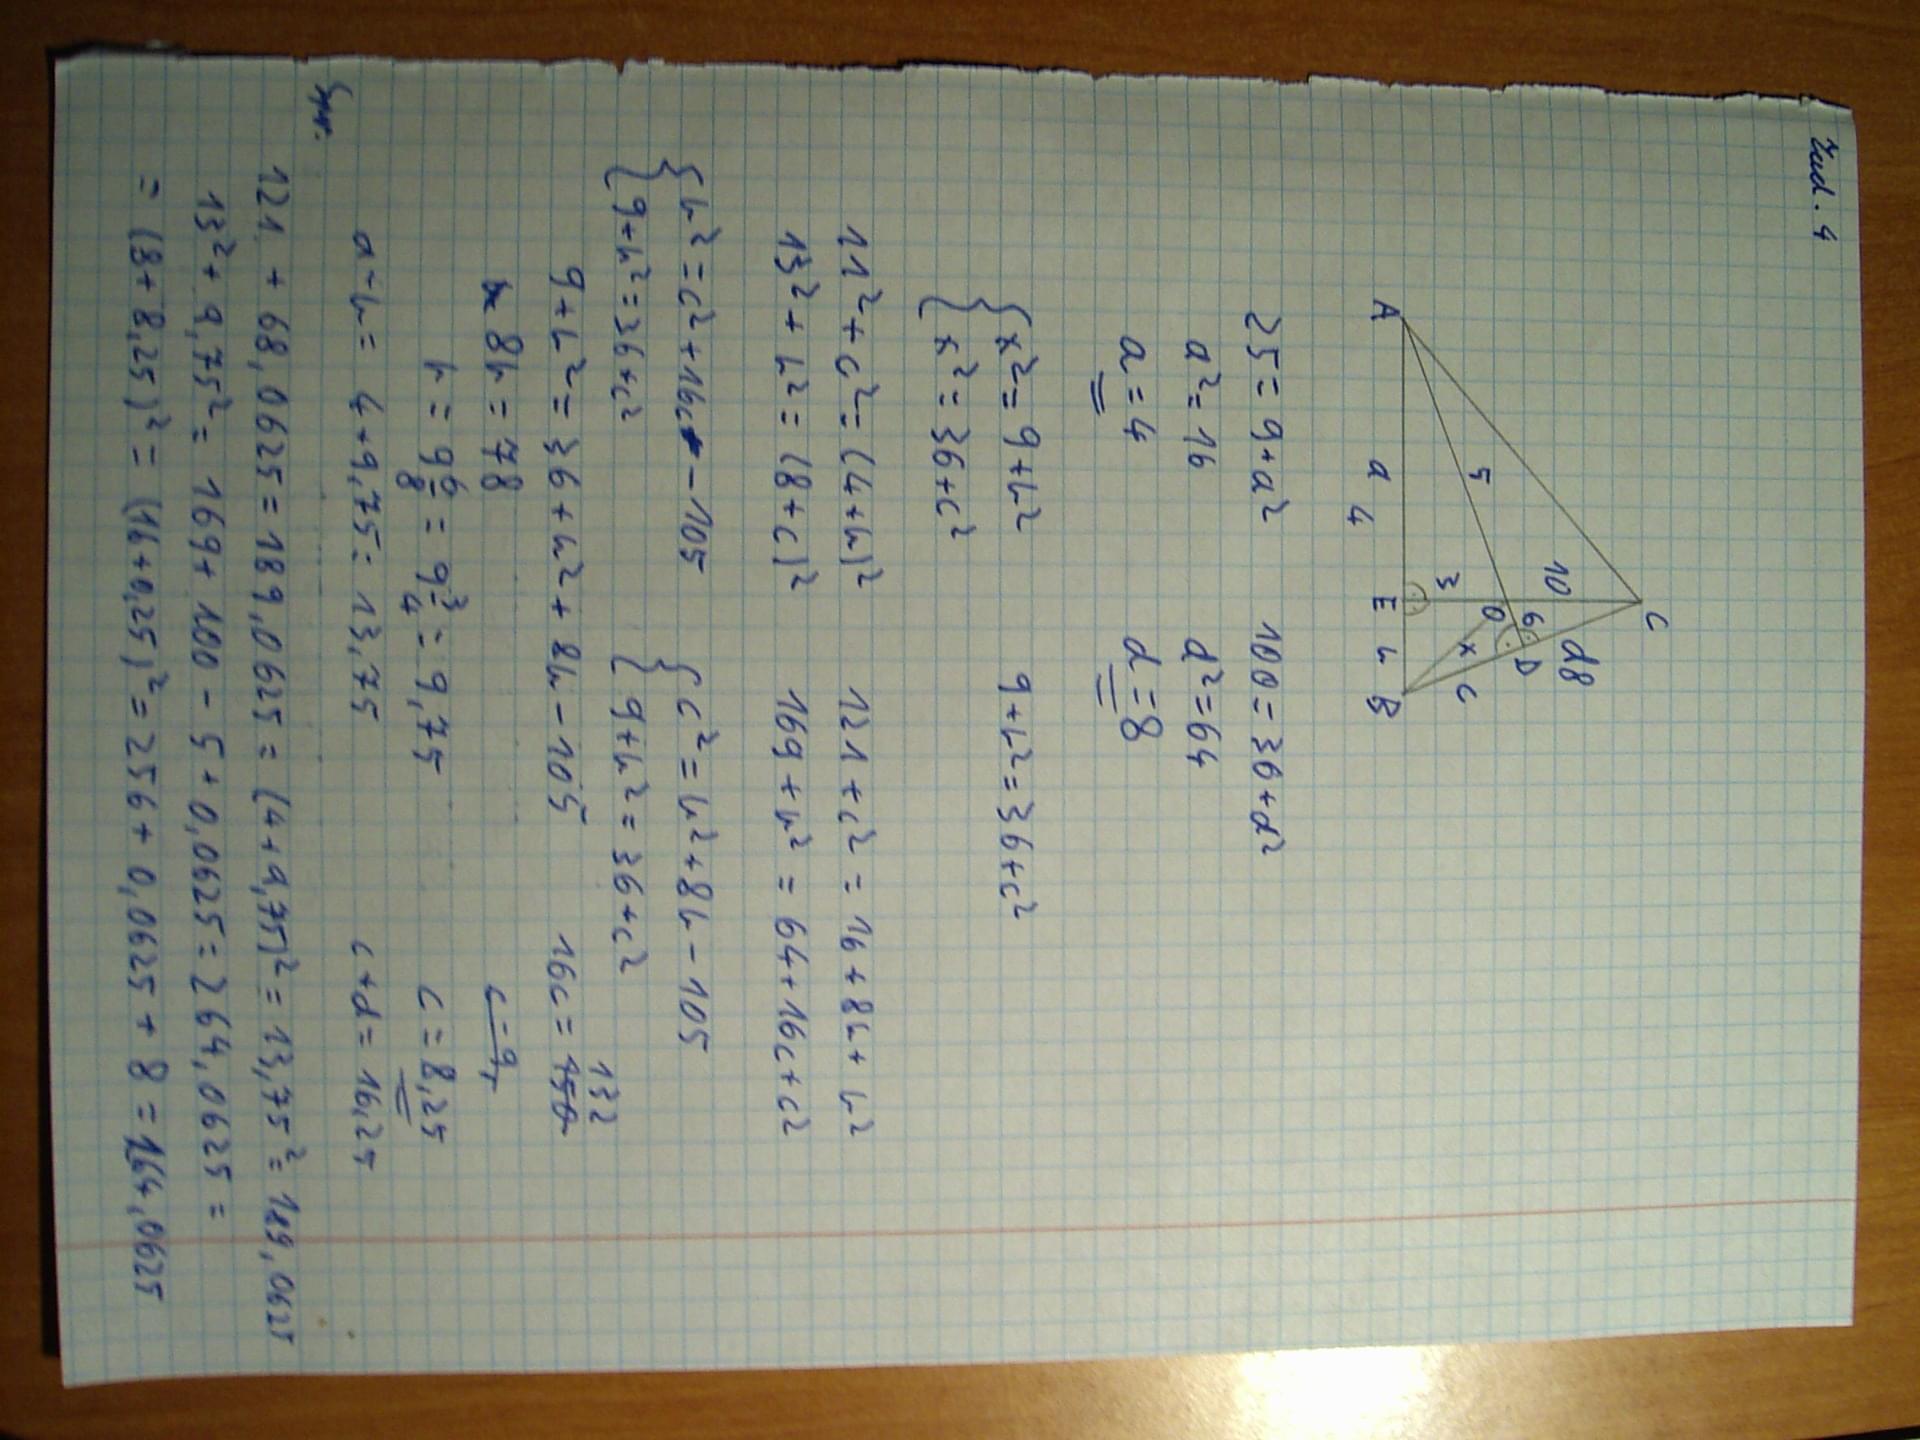 Zad. 4
C
10
8 d
6
D
5
O
x
c
3
A
a
E
h
B
4
25 = 9 + a² 100 = 36 + d²
a² = 16 d² = 64
a = 4 d = 8
{ x² = 9 + h² 9 + h² = 36 + c²
{ x² = 36 + c²
11² + c² = (4+h)² 121 + c² = 16 + 8h + h²
13² + h² = (8+c)² 169 + h² = 64 + 16c + c²
{ h² = c² + 16c - 105 { c² = h² + 8h - 105
{ 9 + h² = 36 + c² { 9 + h² = 36 + c²
9 + h² = 36 + h² + 8h - 105 16c = 150 132
8h = 78 c = 9
h = 9 6/8 = 9 3/4 = 9,75 c = 8,25
a + h = 4 + 9,75 = 13,75 c + d = 16,25
Spr.
121 + 68,0625 = 189,0625 = (4 + 9,75)² = 13,75² = 189,0625
13² + 9,75² = 169 + 100 - 5 + 0,0625 = 264,0625 =
= (8 + 8,25)² = (16 + 0,25)² = 256 + 0,0625 + 8 = 264,0625